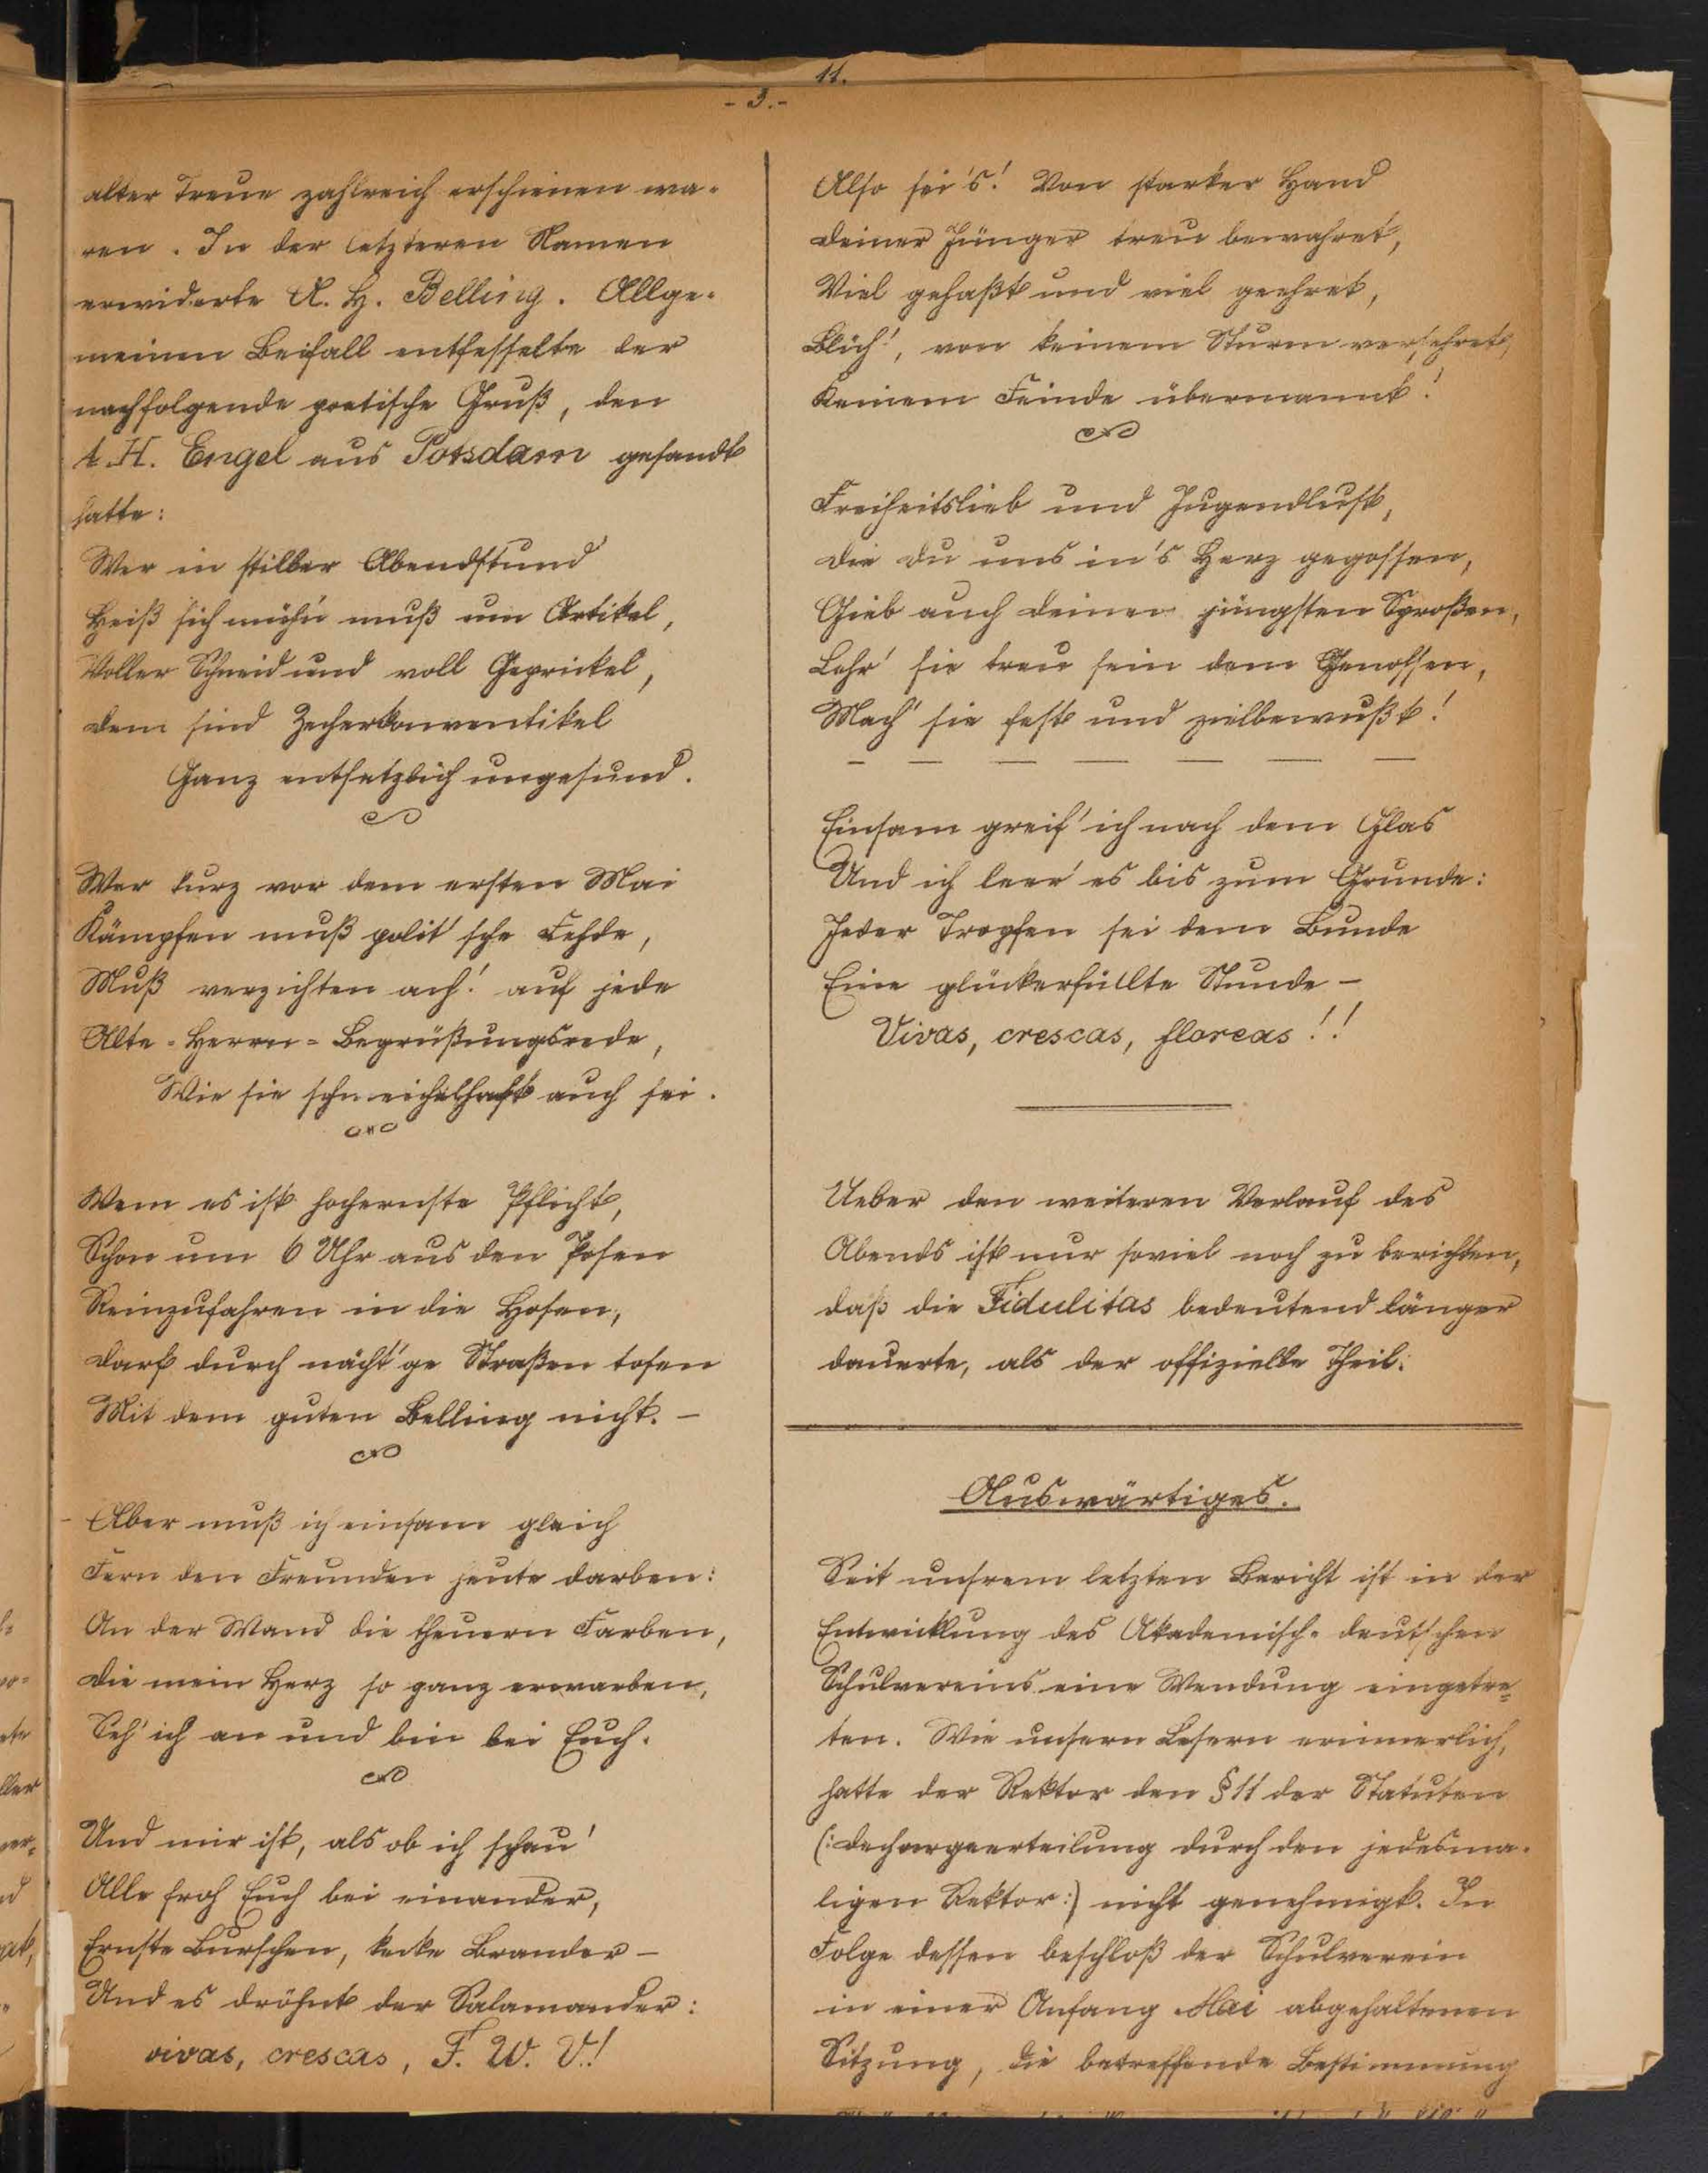 11.
- 3. -
alter Treue zahlreich erschienen wa-
ren. In der letzteren Namen
erwiderte A. H. Belling. Allge-
meinen Beifall entfesselte der
nachfolgende poetische Gruß, den
A. H. Engel aus Potsdam gesandt
hatte:
Wer in stiller Abendstund'
Heiß sich müh'n muß um Artikel,
Voller Schneid und voll Geprickel,
Dem sind Zecherkonventikel
Ganz entsetzlich ungesund.
Wer kurz vor dem ersten Mai
Kämpfen muß polit'sche Fehde,
Muß verzichten ach! auf jede
Alte-Herrn-Begrüßungsrede,
Wie sie schmeichelhaft auch sei.
Wem es ist hochernste Pflicht,
Schon um 6 Uhr aus den Posen
Reinzufahren in die Hosen,
Darf durch nächt'ge Straßen tosen
Mit dem guten Belling nicht. –
- Aber muß ich einsam gleich
Fern den Freunden heute darben:
An der Wand die theuern Farben,
Die mein Herz so ganz erwarben,
Seh' ich an und bin bei Euch.
Und mir ist, als ob ich schau'
Alle froh Euch bei einander,
Ernste Burschen, kecke Brander –
Und es dröhnt der Salamander:
vivas, crescas, F. W. V.!
Also sei's! Von starker Hand
Deiner Jünger treu bewahret,
Viel gehaßt und viel geehret,
Blüh', von keinem Sturm versehret,
Keinem Feinde übermannt!
Freiheitslieb und Jugendlust,
Die du uns in's Herz gegossen,
Gieb auch deinen jüngsten Sproßen,
Lehr' sie treu sein dem Genossen,
Mach' sie fest und zielbewußt!
Einsam greif' ich nach dem Glas
Und ich leer' es bis zum Grunde:
Jeder Tropfen sei dem Bunde
Eine glückerfüllte Stunde –
Vivas, crescas, floreas!!
Ueber den weiteren Verlauf des
Abends ist nur soviel noch zu berichten,
daß die Fidulitas bedeutend länger
dauerte, als der offizielle Theil.
Auswärtiges.
Seit unsrem letzten Bericht ist in der
Entwicklung des Akademisch-deutschen
Schulvereins eine Wendung eingetre-
ten. Wie unsern Lesern erinnerlich,
hatte der Rektor den § 11 der Statuten
(: Dechargeerteilung durch den jedesma-
ligen Rektor :) nicht genehmigt. In
Folge dessen beschloß der Schulverein
in einer Anfang Mai abgehaltenen
Sitzung, die betreffende Bestimmung